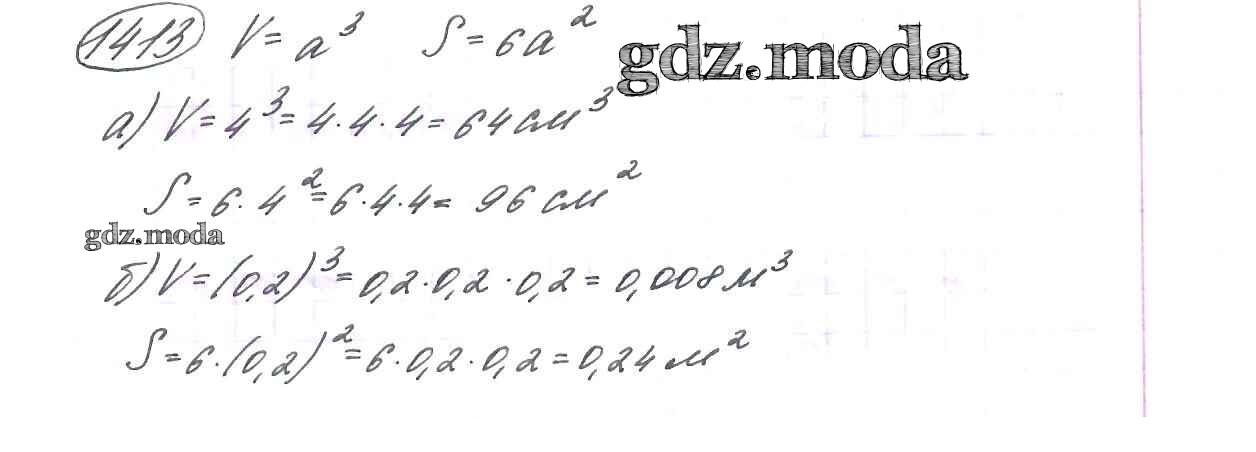 1413 V = a³ S = 6a² gdz.moda
а) V = 4³ = 4·4·4 = 64 см³
S = 6·4² = 6·4·4 = 96 см²
gdz.moda
б) V = (0,2)³ = 0,2·0,2·0,2 = 0,008 м³
S = 6·(0,2)² = 6·0,2·0,2 = 0,24 м²